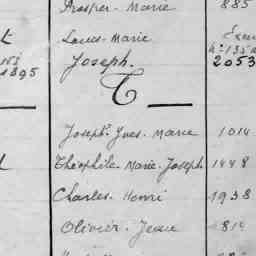 Prosper - Marie 885
Louis - Marie
Joseph. 2053
1895
T
Joseph - Yves - Marie 1014
Théophile - Marie - Joseph 1448
Charles - Henri 1938
Olivier - 814